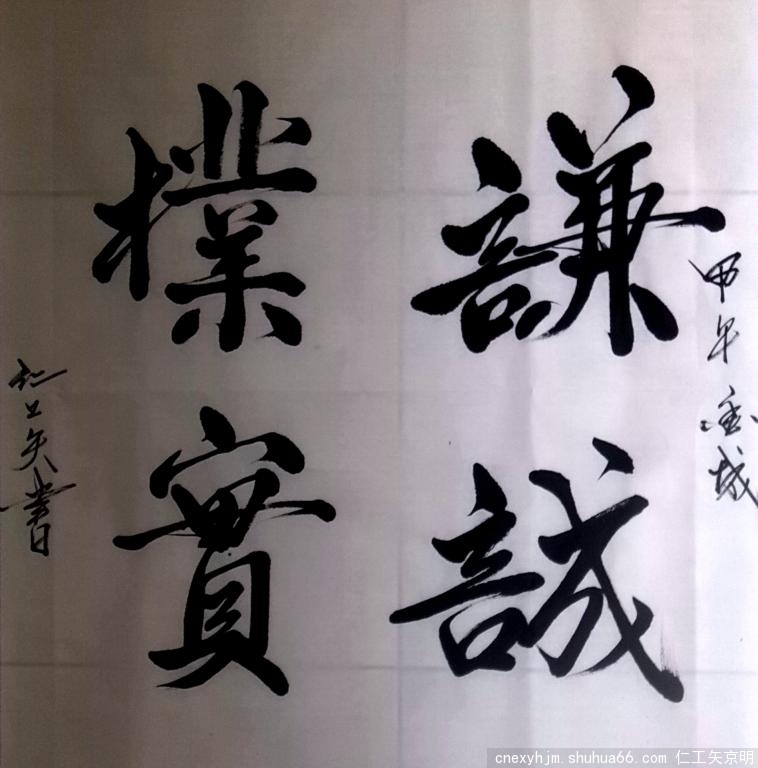 甲午金城
謙誠
樸實
仁工矢書
cnexyhjm.shuhua66.com 仁工矢京明